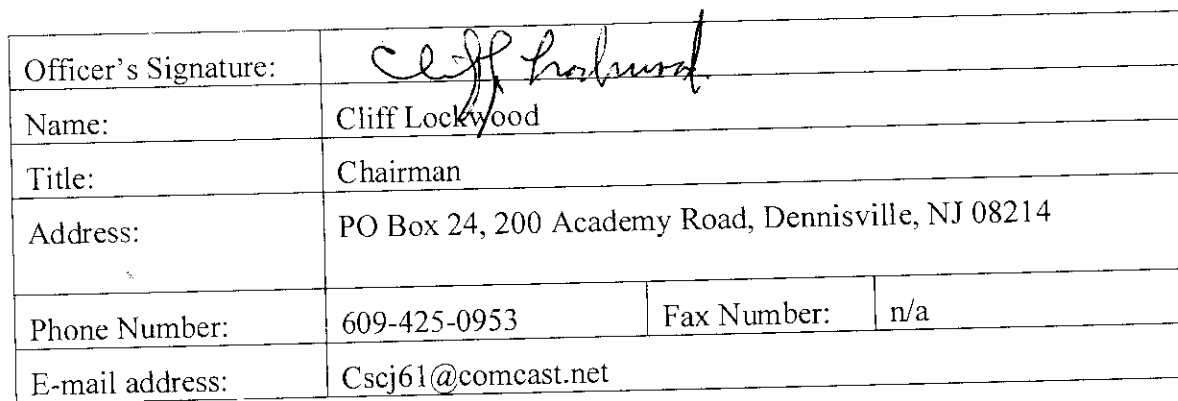 Officer's Signature: Cliff Lockwood
Name: Cliff Lockwood
Title: Chairman
Address: PO Box 24, 200 Academy Road, Dennisville, NJ 08214
Phone Number: 609-425-0953 Fax Number: n/a
E-mail address: Cscj61@comcast.net